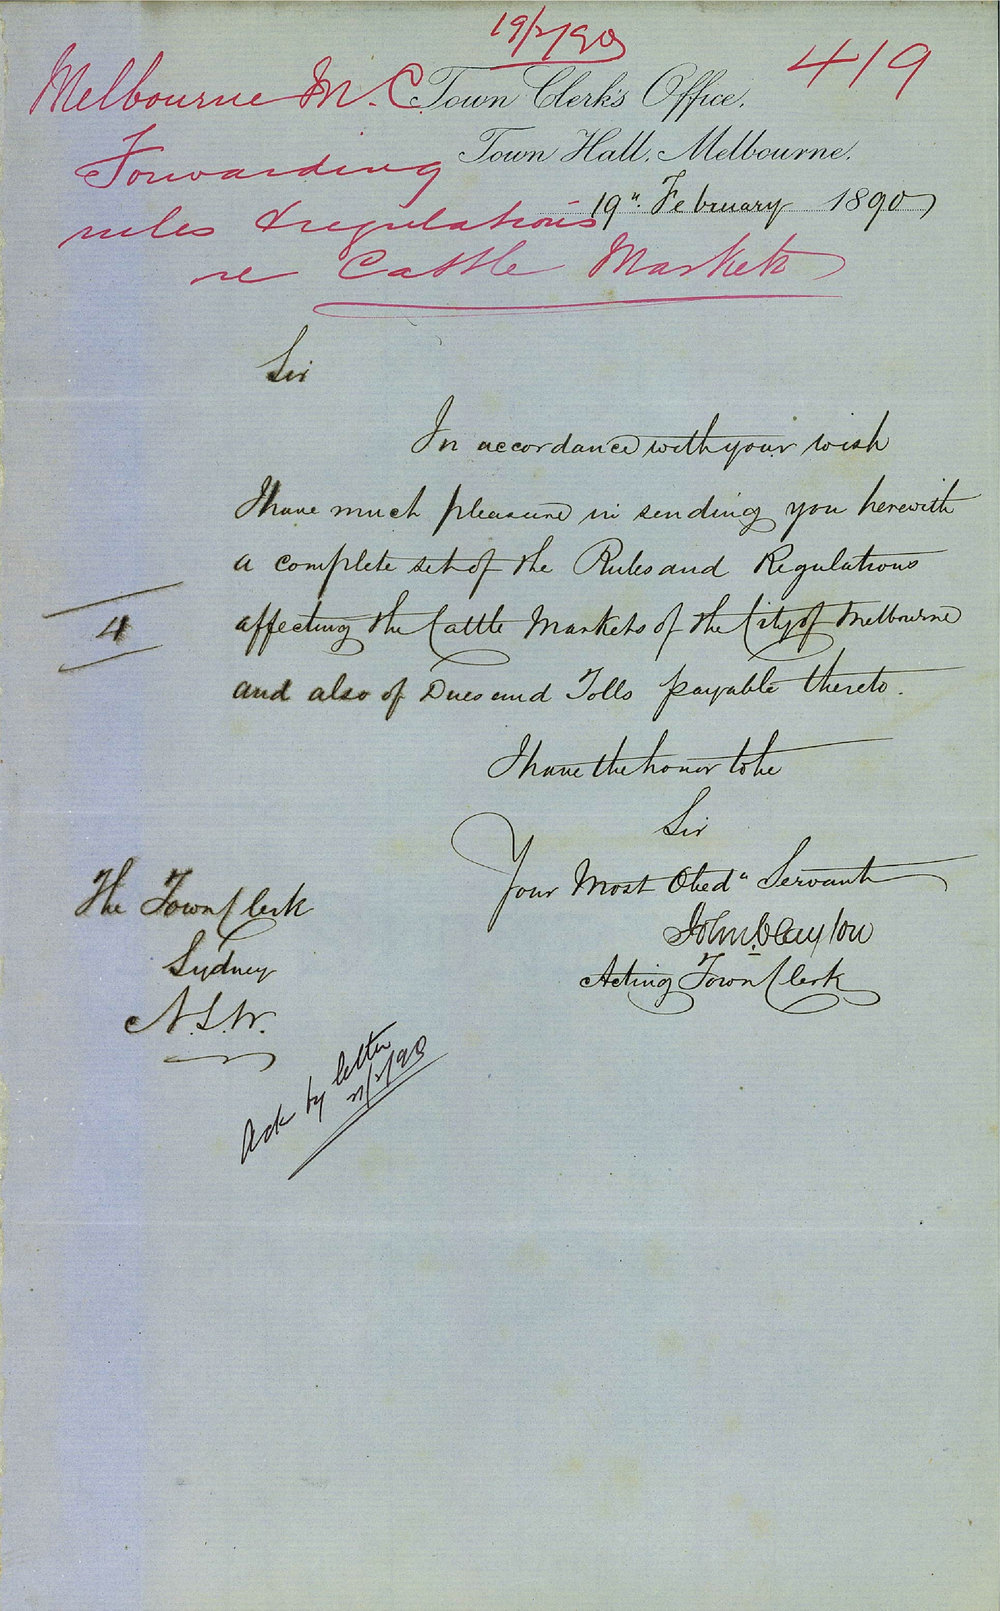 19/2/90
419
Melbourne M. C.
Town Clerk's Office,
Town Hall, Melbourne.
Forwarding
19" February 1890
rules & regulations
re Cattle Markets
Sir
In accordance with your wish
I have much pleasure in sending you herewith
a complete set of the Rules and Regulations
4
affecting the Cattle Markets of the City of Melbourne
and also of Dues and Tolls payable thereto.
I have the honor to be
Sir
Your Most Obed" Servant
John Clayton
Acting Town Clerk
The Town Clerk
Sydney
N.S.W.
Ack by letter
21/2/90